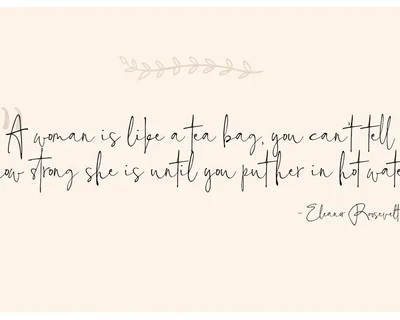 "
A woman is like a tea bag, you can't tell
how strong she is until you put her in hot wate
- Eleanor Roosevelt